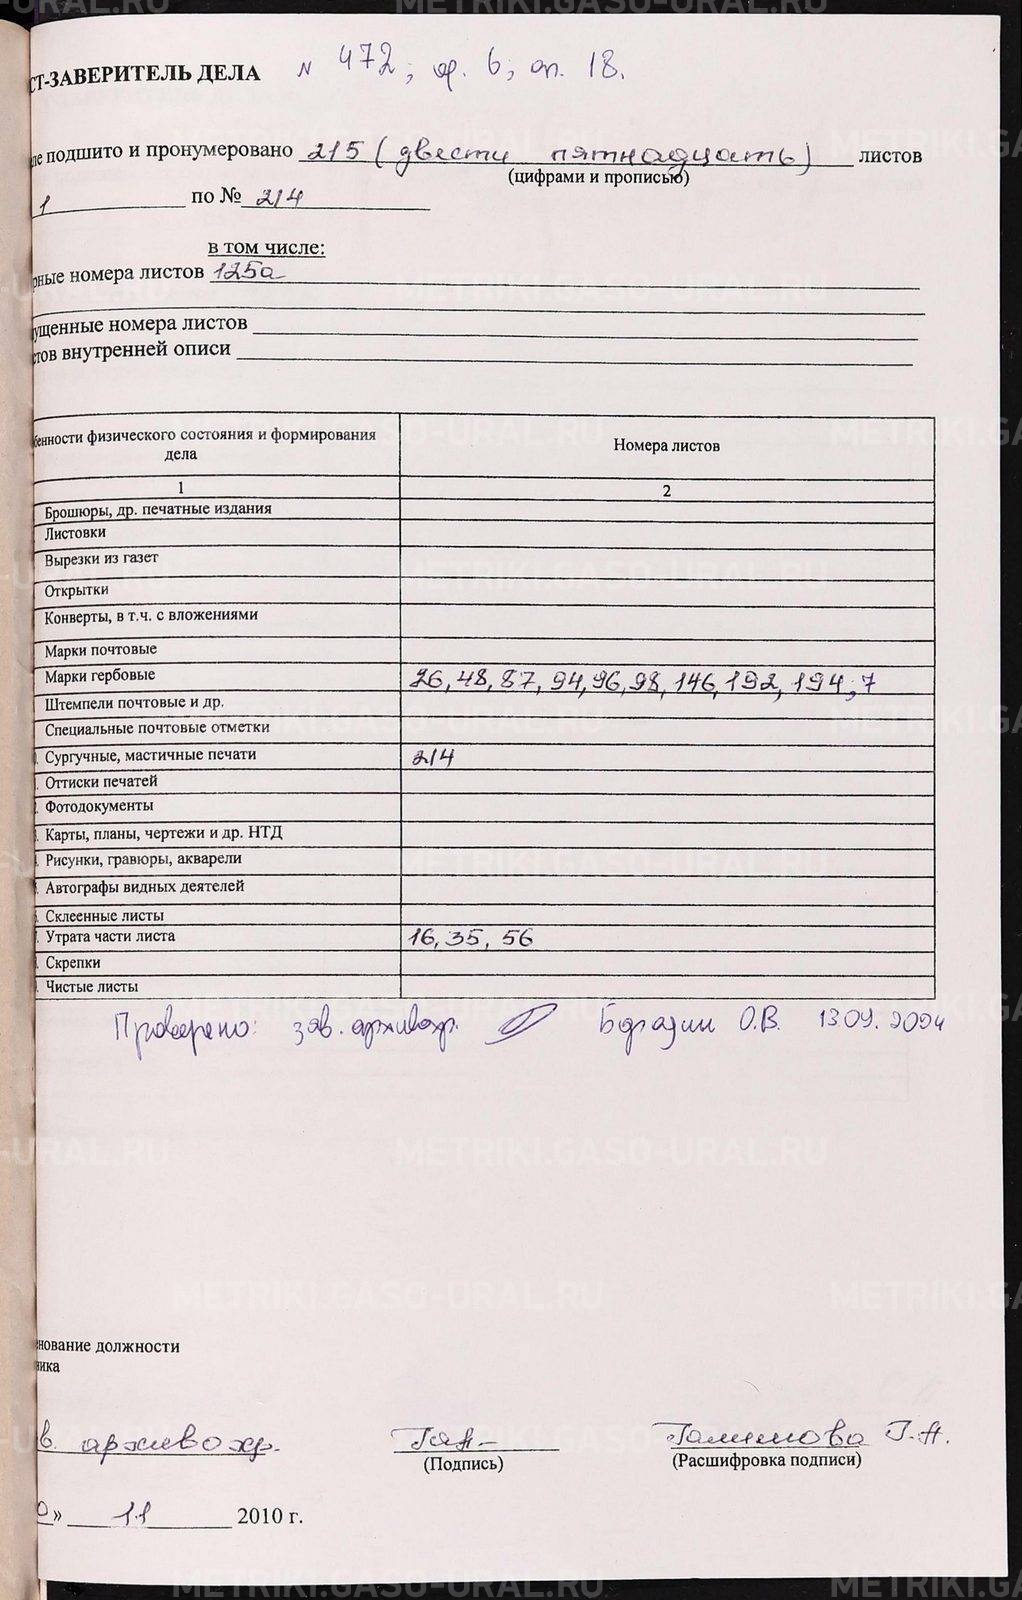 СТ-ЗАВЕРИТЕЛЬ ДЕЛА № 472, ф. 6, оп. 18.
ле подшито и пронумеровано 215 (двести пятнадцать) листов
(цифрами и прописью)
1 по № 214
в том числе:
рные номера листов 125а
ущенные номера листов
стов внутренней описи
бенности физического состояния и формирования дела Номера листов
1 2
Брошюры, др. печатные издания
Листовки
Вырезки из газет
Открытки
Конверты, в т.ч. с вложениями
Марки почтовые
Марки гербовые 26, 48, 87, 94, 96, 98, 146, 192, 194, 7
Штемпели почтовые и др.
Специальные почтовые отметки
Сургучные, мастичные печати 214
Оттиски печатей
Фотодокументы
Карты, планы, чертежи и др. НТД
Рисунки, гравюры, акварели
Автографы видных деятелей
Склеенные листы
Утрата части листа 16, 35, 56
Скрепки
Чистые листы
Проверено: зав. архивохр. О.В. 13.09.2024
енование должности
ника
в. архивохр. Галимова Г.Н.
(Подпись) (Расшифровка подписи)
0» 11 2010 г.
METRIKI.GASO-URAL.RU